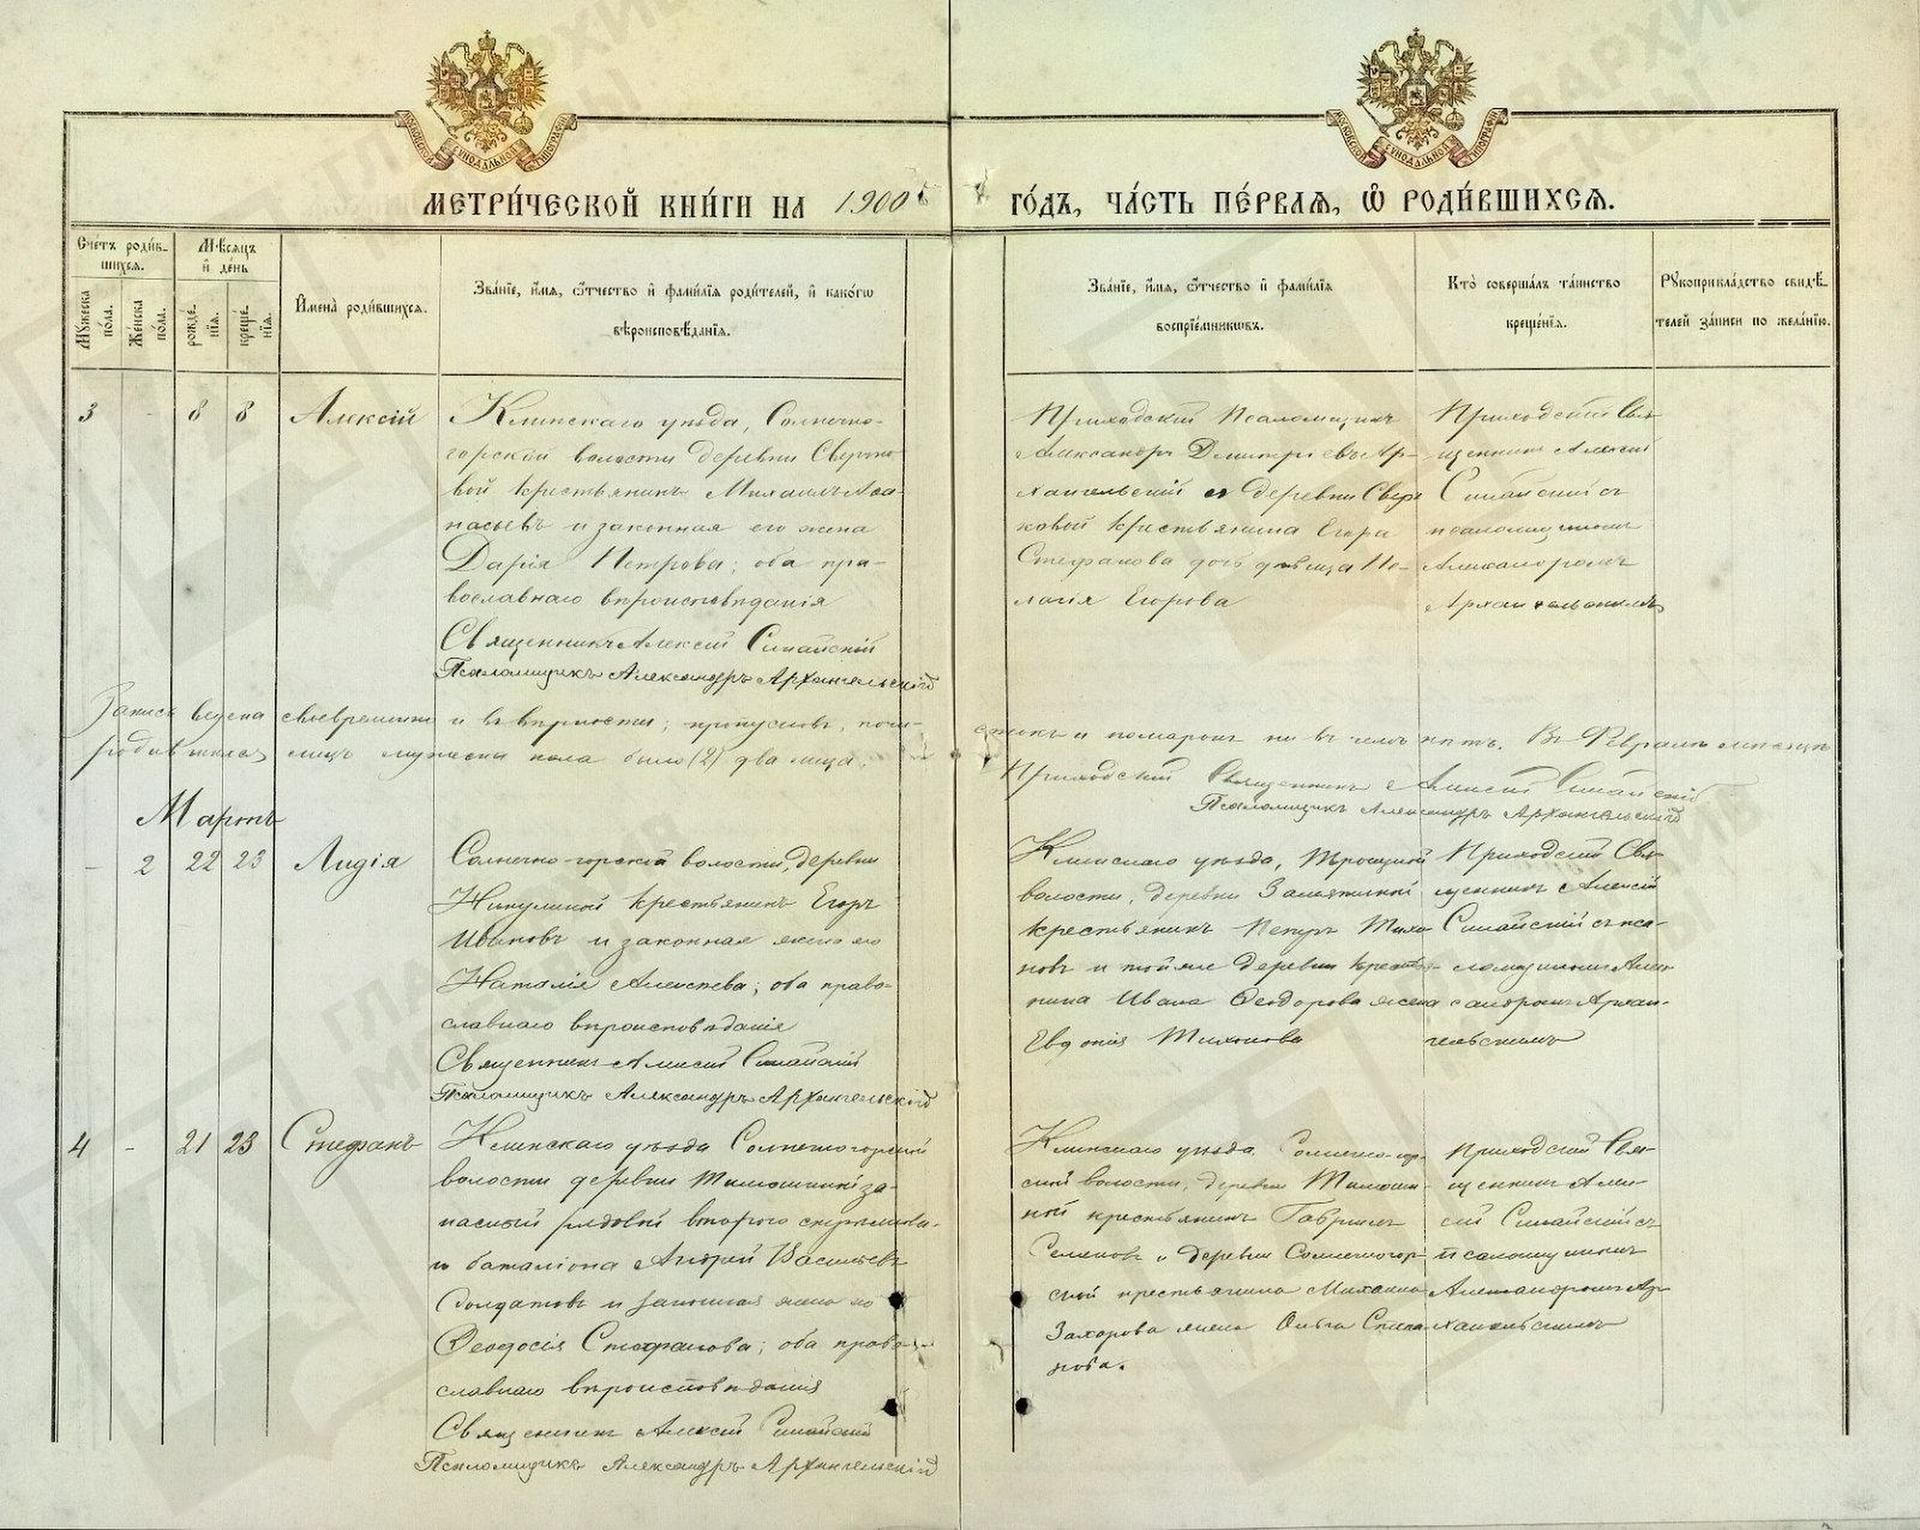 МЕТРИ́ЧЕСКОЙ КНИ́ГИ НА 1900й
ГО́ДЪ, ЧА́СТЬ ПЕ́РВАѦ, Ѡ҆ РОДИ́ВШИХСѦ.
Сче́тъ роди́в-
шихсѧ.
Мꙋжеска по́ла.
Же́нска по́ла.
Мѣ́сѧцъ и҆ де́нь
рожде́нїѧ.
креще́нїѧ.
И҆мена̀ роди́вшихсѧ.
Зва́нїе, и҆́мѧ, ѻ҆́тчество и҆ фами́лїѧ роди́телей, и҆ како́гѡ
вѣроисповѣ́данїѧ.
Зва́нїе, и҆́мѧ, ѻ҆́тчество и҆ фами́лїѧ
воспрїе́мникѡвъ.
Кто̀ соверша́лъ та́инство
креще́нїѧ.
Рꙋкоприкла́дство свидѣ́-
телей за́писи по жела́нїю.
3 - 8 8 Алексій
Клинскаго уѣзда, Солнечно-
горской волости деревни Сверчко
вой крестьянинъ Михаилъ Аѳа-
насьевъ и законная его жена
Дарія Петрова; оба пра-
вославнаго вѣроисповѣданія
Священникъ Алексій Синайскій
Псаломщикъ Александръ Архангельскій
Приходскій Псаломщикъ
Александръ Димитріевъ Ар-
хангельскій и деревни Сверч
ковой крестьянина Егора
Стефанова дочь дѣвица Пе-
лагія Егорова
Приходскій Свя-
щенникъ Алексій
Синайскій съ
псаломщикомъ
Александромъ
Архангельскимъ
Запись ведена своевременно и вѣрности; пропусковъ, почи-
стокъ и помарокъ ни въ чемъ нѣтъ. Въ Февралѣ мѣсяцѣ
родившихся лицъ мужеска пола было (2) два лица.
Приходскій Священникъ Алексій Синайскій
Псаломщикъ Александръ Архангельскій
Мартъ
- 2 22 23 Лидія
Солнечно-горской волости, деревни
Никулиной крестьянинъ Егоръ
Ивановъ и законная жена его
Наталія Алексѣева; оба право-
славнаго вѣроисповѣданія
Священникъ Алексій Синайскій
Псаломщикъ Александръ Архангельскій
Клинскаго уѣзда, Троицкой
волости, деревни Замятиной
крестьянинъ Петръ Тихо
новъ и той же деревни кресть-
янина Ивана Ѳеодорова жена
Евдокія Тихонова
Приходскій Свя-
щенникъ Алексій
Синайскій съ пса-
ломщикомъ Алек-
сандромъ Архан-
гельскимъ
4 - 21 23 Стефанъ
Клинскаго уѣзда Солнечногорской
волости деревни Тимошкиной за-
пасный рядовой второго стрѣлкова-
го баталіона Андрей Васильевъ
Солдатовъ и законная жена его
Ѳеодосія Стефанова; оба право-
славнаго вѣроисповѣданія
Священникъ Алексій Синайскій
Псаломщикъ Александръ Архангельскій
Клинскаго уѣзда Солнечно-гор-
ской волости, деревни Тимошки-
ной крестьянинъ Гавріилъ
Семеновъ и деревни Солнечногор-
ской крестьянина Михаила
Захарова жена Ольга Степа
нова.
Приходскій Свя-
щенникъ Алек-
сій Синайскій съ
псаломщикомъ
Александромъ Ар-
хангельскимъ